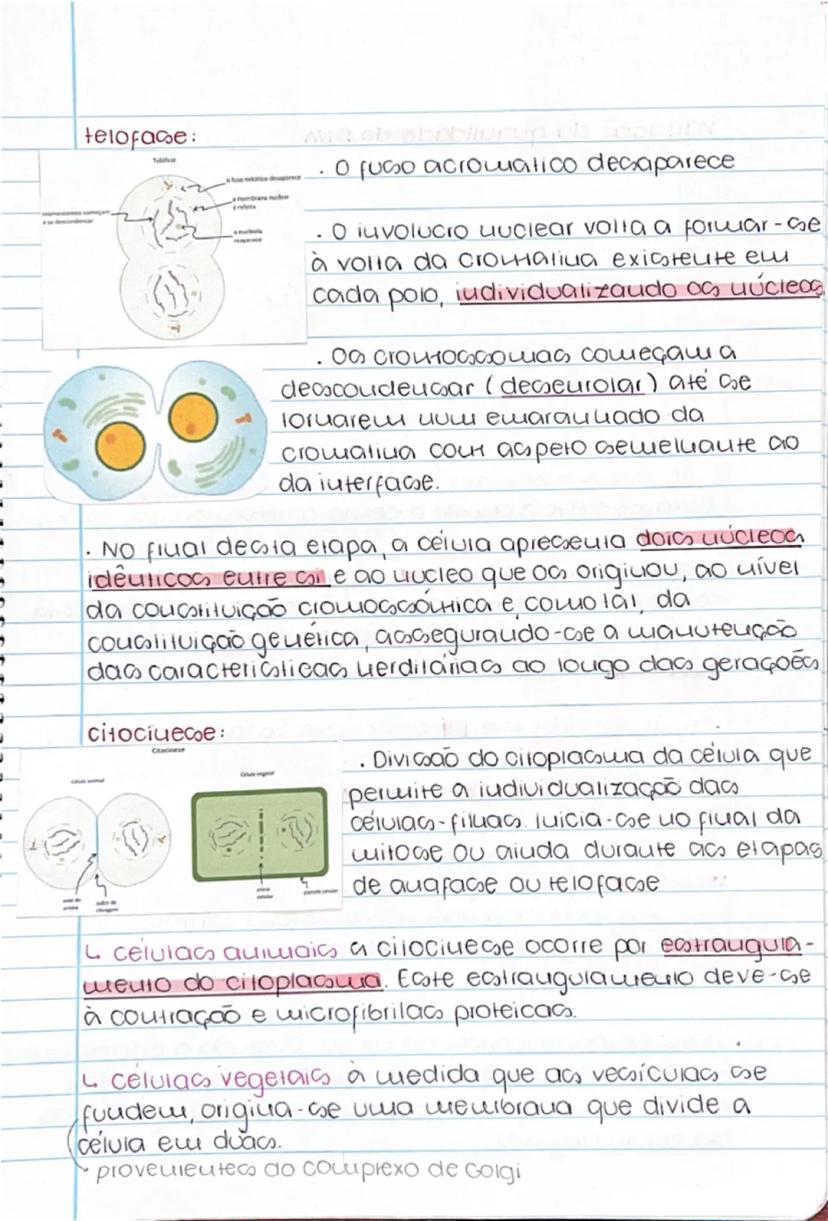 telofase:
Telófase
o fuso mitótico desaparece
a membrana nuclear
é refeita
cromossomos começam
a se descondensar
o nucléolo
reaparece
. O fuso acromatico desaparece
. O involucro nuclear volta a formar-se
à volta da cromatina existente em
cada polo, individualizando os núcleos
. Os cromossomas começam a
descondensar (desenrolar) até se
tornarem num emaranhado da
cromatina com aspeto semelhante ao
da interfase.
. No final desta etapa, a célula apresenta dois núcleos
idênticos entre si e ao nucleo que os originou, ao nível
da constituição cromossómica e, como tal, da
constituição genética, assegurando-se a manutenção
das características herditárias ao longo das gerações
citocinese:
Citocinese
Célula animal
Célula vegetal
anel de
sulco de
clivagem
placa
celular
parede celular
. Divisão do citoplasma da célula que
permite a individualização das
células-filhas. Inicia-se no final da
mitose ou ainda durante as etapas
de anafase ou telofase
↳ células animais a citocinese ocorre por estrangula-
mento do citoplasma. Este estrangulamento deve-se
à contração e microfibrilas proteicas.
↳ células vegetais à medida que as vesículas se
fundem, origina-se uma membrana que divide a
célula em duas.
provenientes do complexo de Golgi